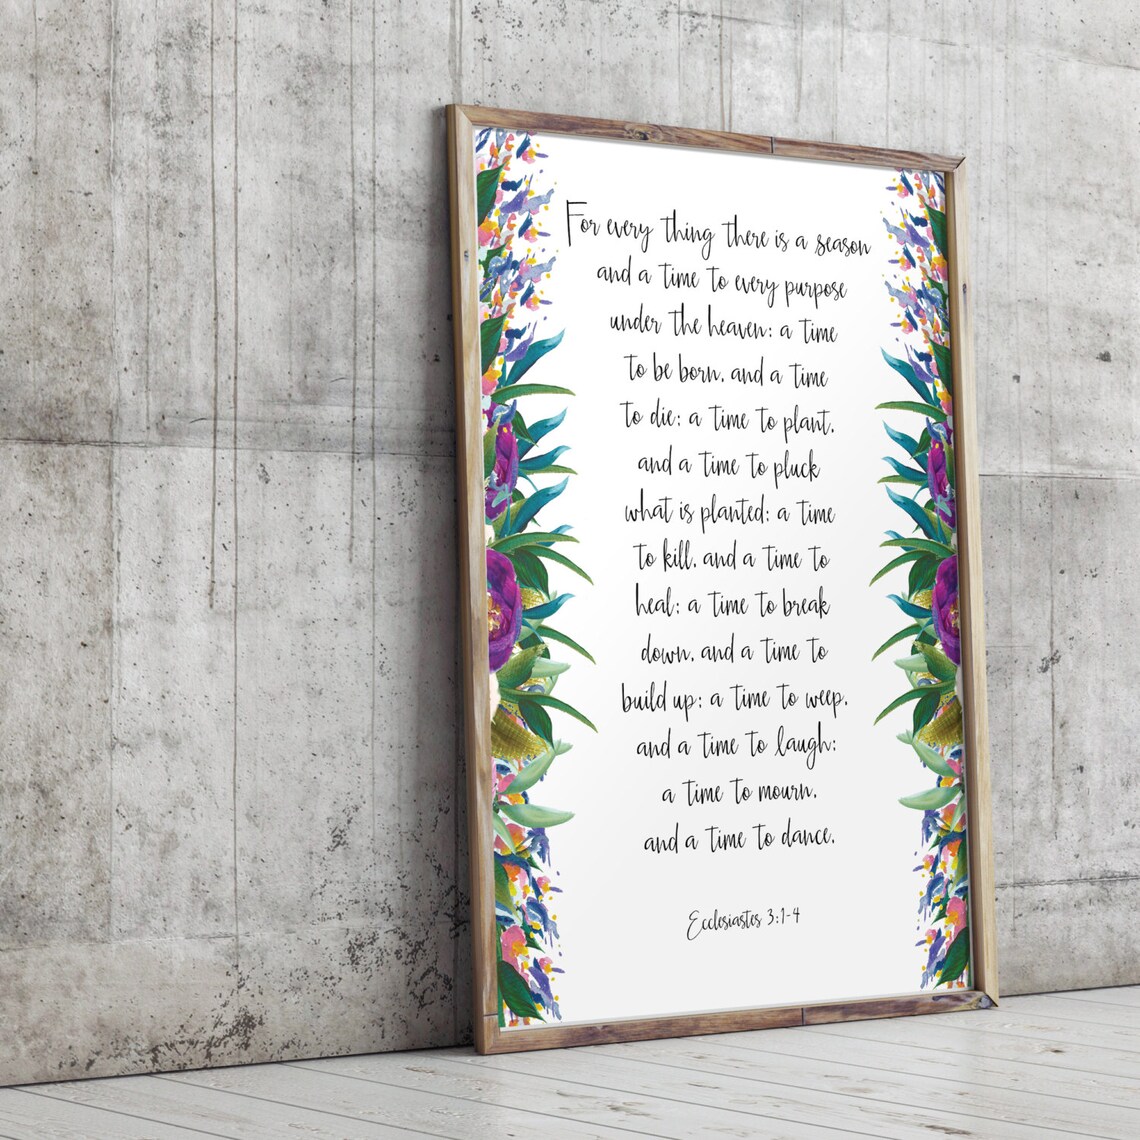 For every thing there is a season
and a time to every purpose
under the heaven: a time
to be born, and a time
to die; a time to plant,
and a time to pluck
what is planted; a time
to kill, and a time to
heal; a time to break
down, and a time to
build up; a time to weep,
and a time to laugh;
a time to mourn,
and a time to dance.
Ecclesiastes 3:1-4